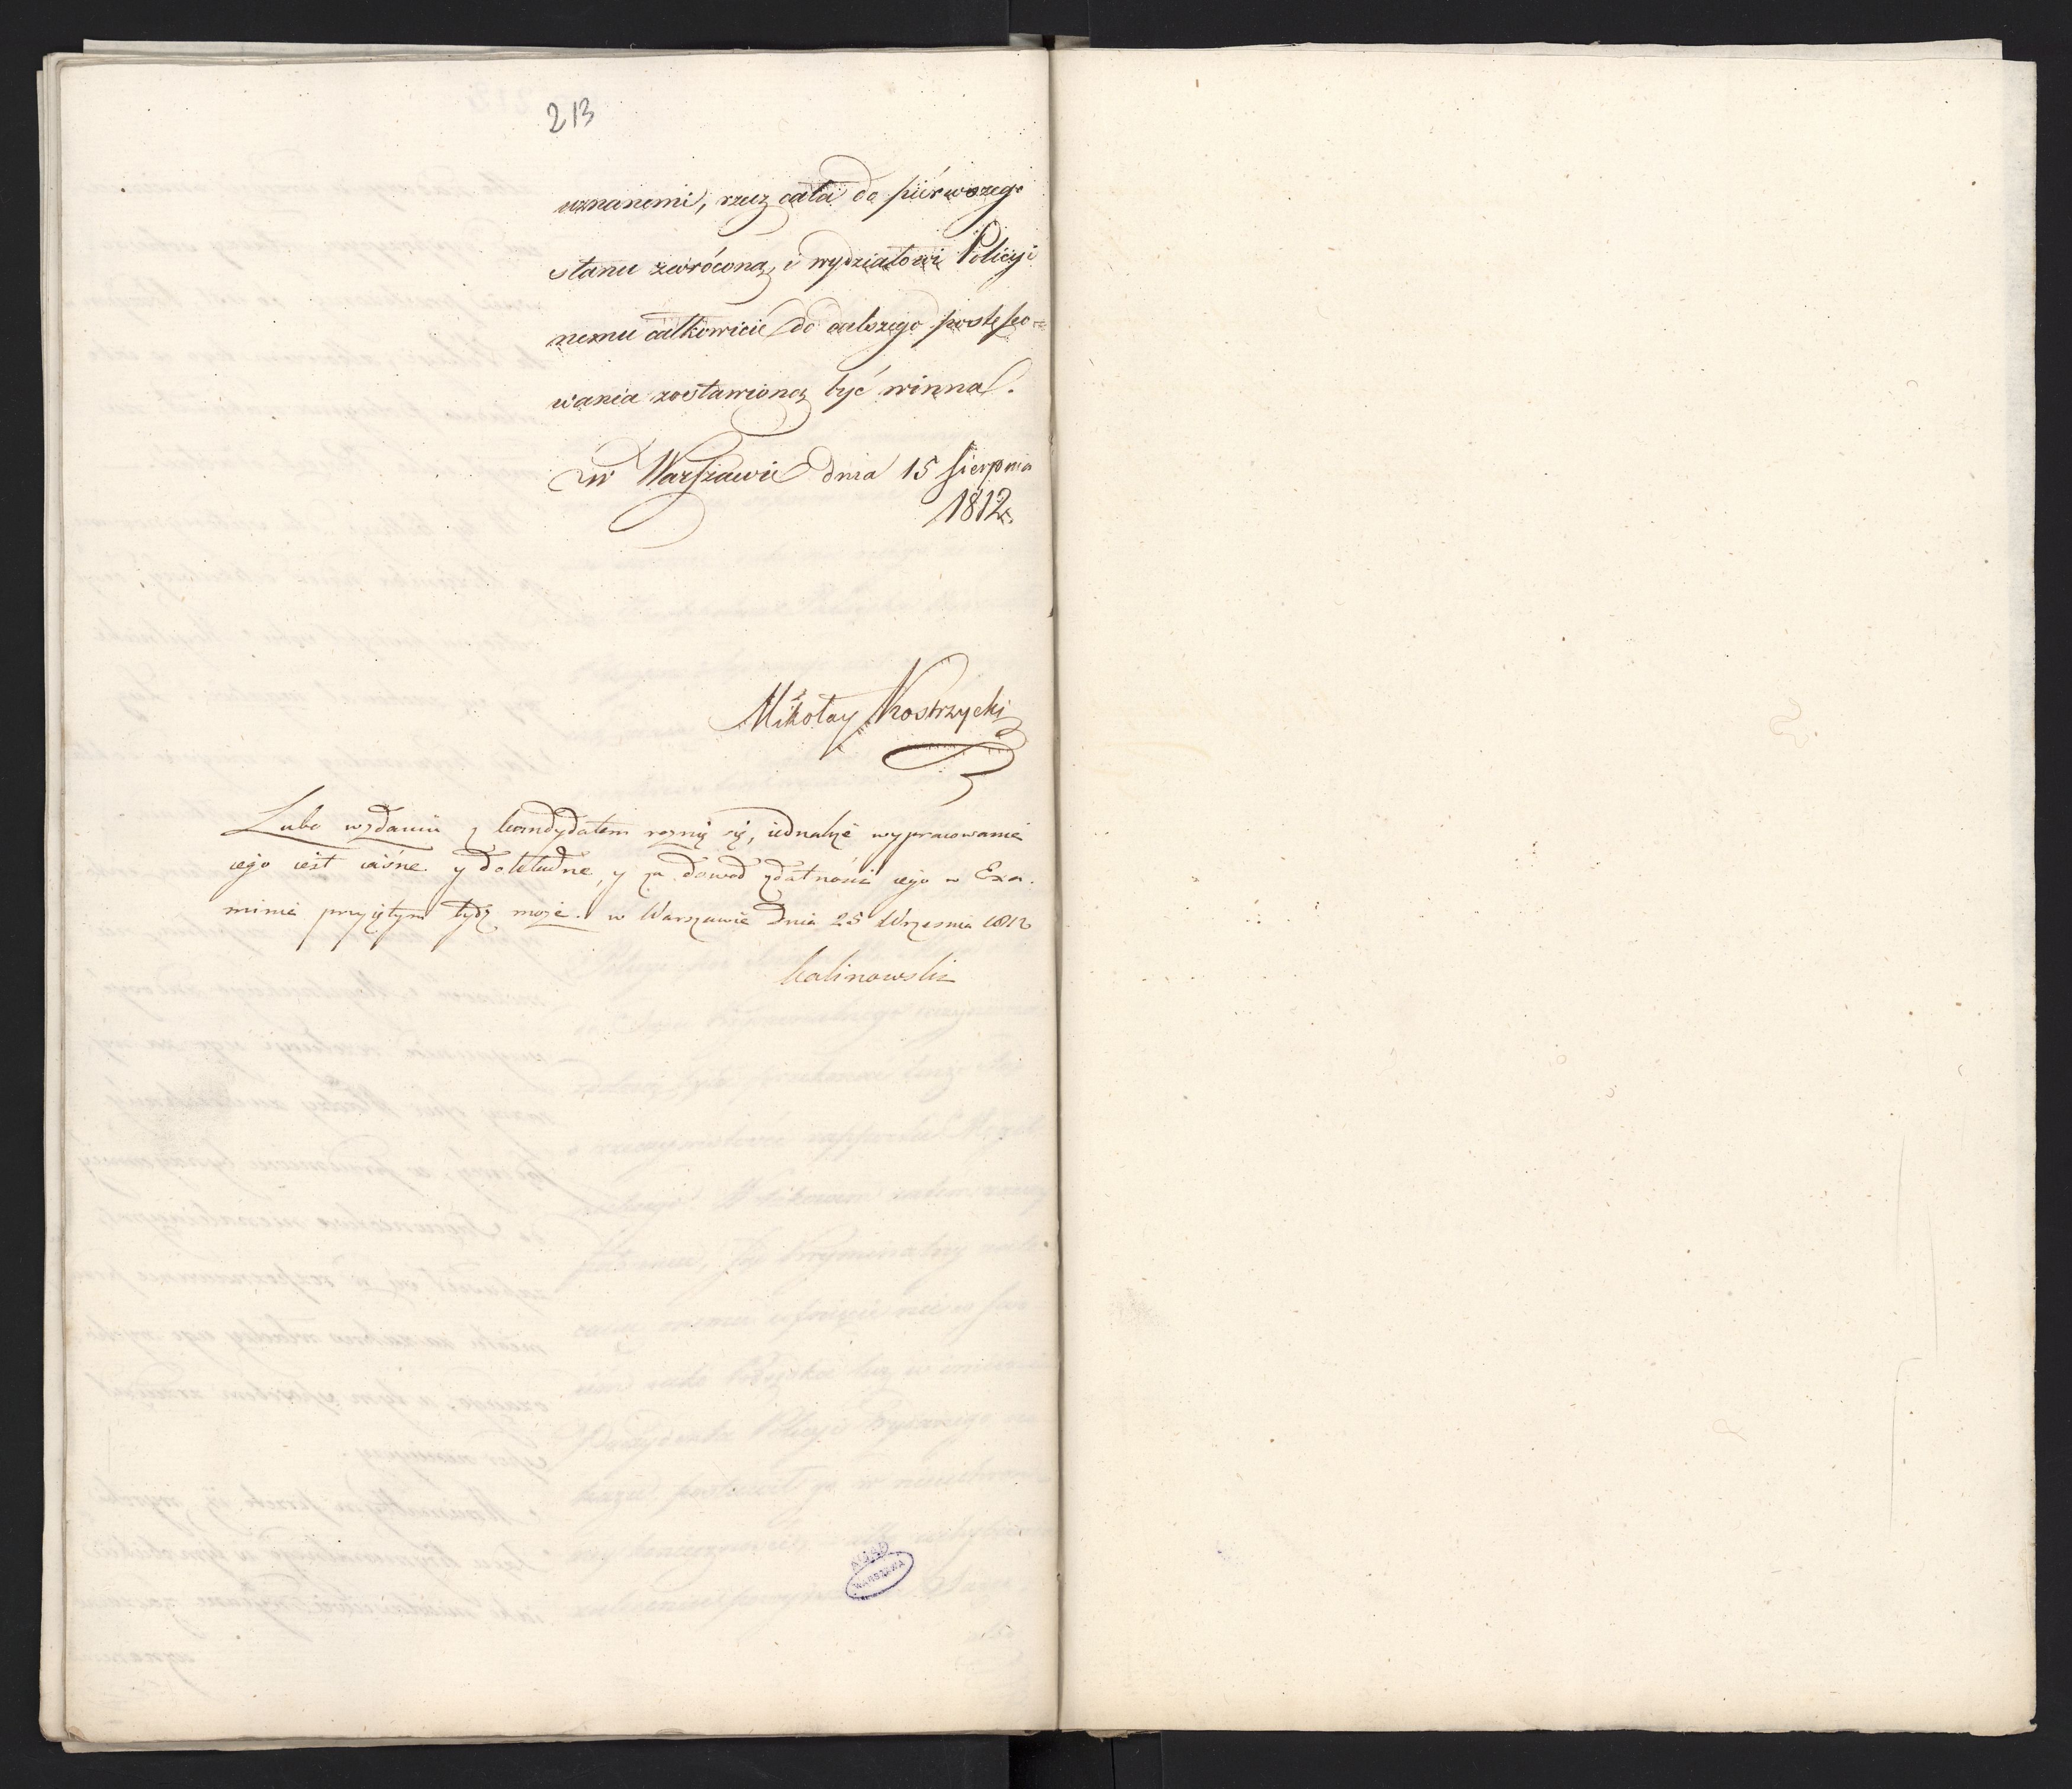 213
uznanemi, rzecz cała do piérwszego
stanu zwróconą, i wydziałowi Policyi
nemu całkowicie do dalszego postępo=
wania zostawioną być winna.
w Warszawie dnia 15 Sierpnia
1812.
Mikołay Kostrzycki
Lubo w zdaniu z kandydatem roznię się, iednakże wypracowanie
iego iest iaśne y dokładne, y za dowod zdatności iego w Exa-
minie przyiętym bydź może. w Warszawie Dnia 25 Września 1812
Kalinowski
AGAD
WARSZAWA